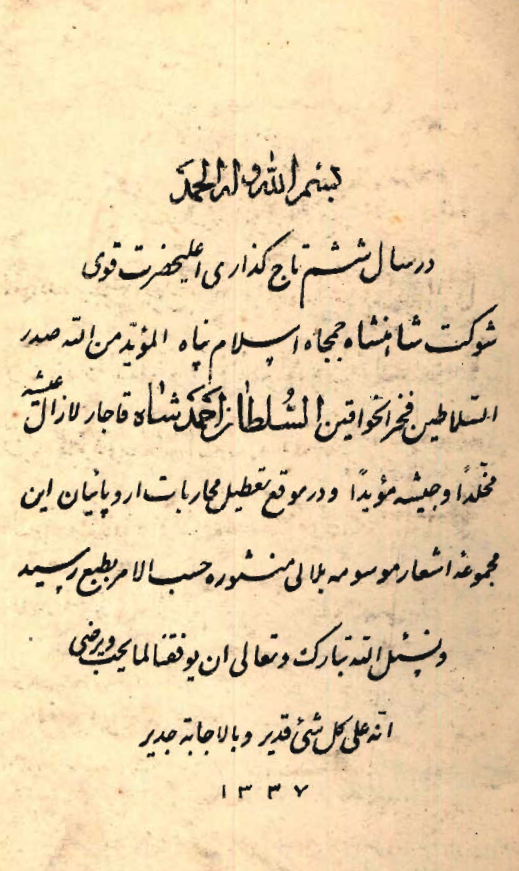 بسم الله وله الحمد
در سال ششم تاج گذاری اعلیحضرت قوی
شوکت شاهنشاه جمجاه اسلام پناه المؤید من الله صدر
السلاطین فخر الخواقین السلطان احمد شاه قاجار لازال عیشه
مخلدا و جیشه مؤیدا و در موقع تعطیل محاربات اروپائیان این
مجموعه اشعار موسومه بلالی منثوره حسب الامر بطبع رسید
ونسئل الله تبارک و تعالی ان یوفقنا لما یحب ویرضی
انه علی کل شئ قدیر و بالاجابة جدیر
۱۳۳۷